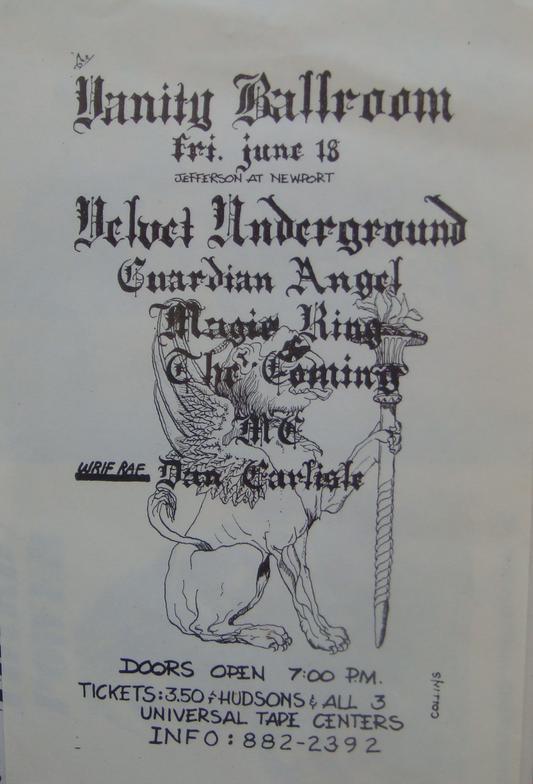 Vanity Ballroom
Fri. June 18
JEFFERSON AT NEWPORT
Velvet Underground
Guardian Angel
Magic Ring
The Coming
MC
WRIF RAF Dan Carlisle
DOORS OPEN 7:00 P.M.
TICKETS: 3.50 - HUDSONS & ALL 3
UNIVERSAL TAPE CENTERS
INFO: 882-2392
COLLINS